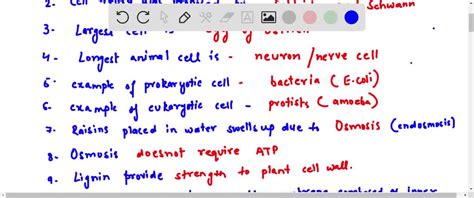 2- Cell Schwann
3- Largest cell is - egg of ostrich
4- Longest animal cell is - neuron / nerve cell
5- example of prokaryotic cell - bacteria (E.coli)
6- example of eukaryotic cell - protists (amoeba)
7. Raisins placed in water swells up due to Osmosis (endosmosis)
8- Osmosis doesnot require ATP
9. Lignin provide strength to plant cell wall.